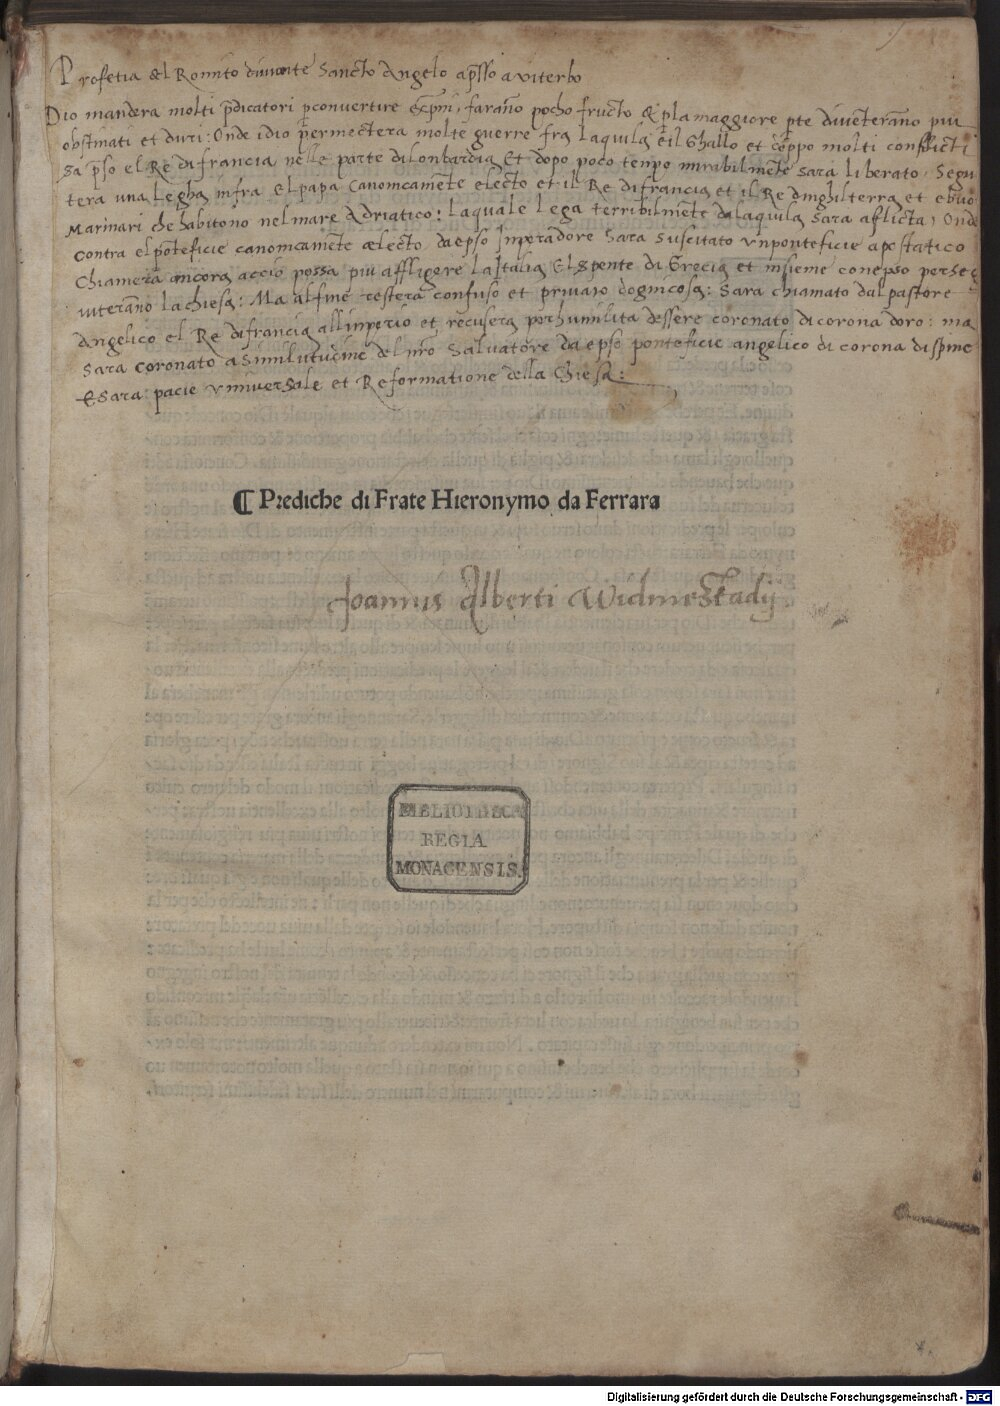 Profetia del Romito divvoite Sancto Angelo ap̄sso a viterbo
Dio mandera molti p̄dicatori p convertire farāno pocho fructo & p la maggiore pte diveterāno piu
obstinati et duri: Onde idio permectera molte guerre fra laquila e il Ghallo et doppo molti conflicti
sa p̄so el Re di francia nelle parte di Lonbardia et dopo poco tenpo mirabilmēte sara liberato. Segui
tera una Legha infra el papa canonicamēte electo et il Re di francia et il Re dinghilterra et e buo
Marinari che habitono nel mare Adriatico: Laquale Lega terribilmēte da laquila sara aflicta, Onde
contra el pōteficie canonicamēte electo da epso Inperadore sara suscitato vn ponteficie apostatico
Chiamera ancora accio possa piu affligere la Italia El spente di Grecia et insieme con epso perse
viterāno la chiesa: Ma al fine restera confuso et privato dogni cosa: Sara chiamato dal pastore
Angelico el Re di francia all inperio et recusera per humilita dessere coronato di corona doro: ma
sara coronato a similitudine del nr̄o Salvatore da epso ponteficie angelico di corona di spine
E sara pacie vniversale et Reformatione della Chiesa:
¶ Prediche di Frate Hieronymo da Ferrara
Joannis Alberti Widmestadij
BIBLIOTHECA
REGIA
MONACENSIS.
Digitalisierung gefördert durch die Deutsche Forschungsgemeinschaft - DFG